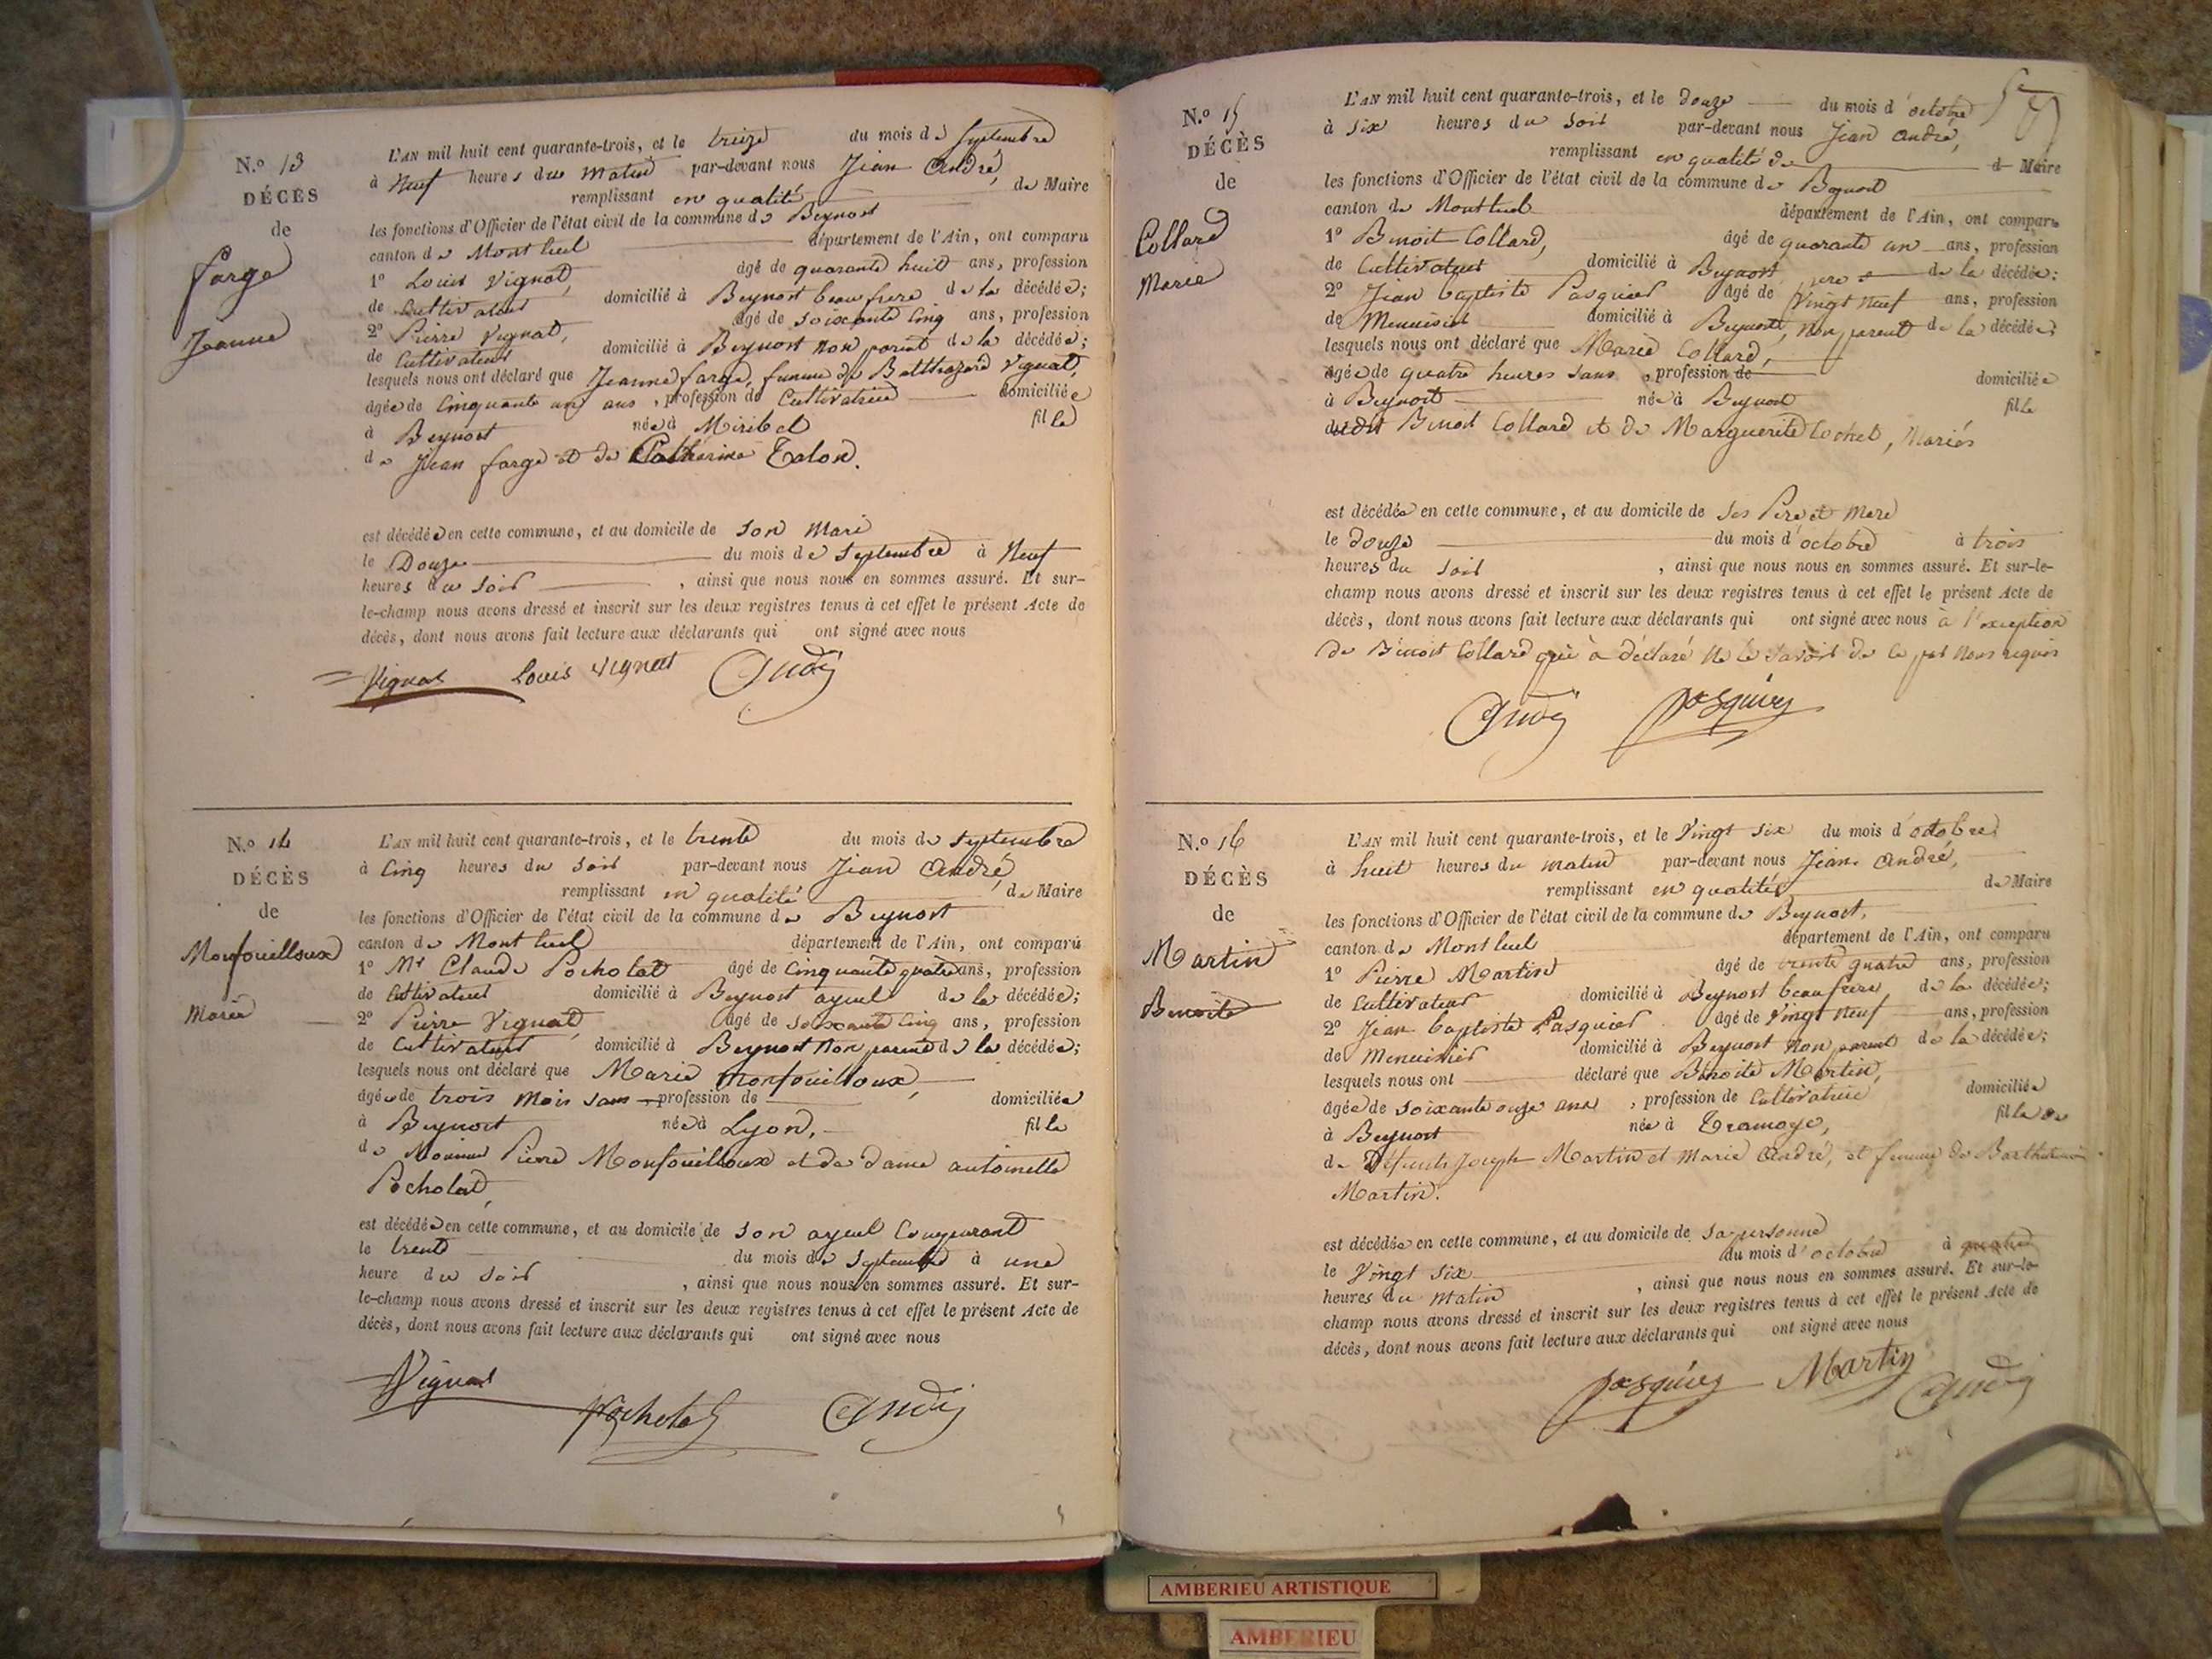 N.o 13
DÉCÈS
de
farge
Jeanne
L'AN mil huit cent quarante-trois, et le treize du mois de Septembre
à Neuf heures du Matin par-devant nous Jean André,
remplissant en qualité de Maire
les fonctions d'Officier de l'état civil de la commune de Beynost
canton de Montluel département de l'Ain, ont comparu
1o Louis Vignat, âgé de quarante huit ans, profession
de Cultivateur domicilié à Beynost beau frere de la décédée;
2o Pierre Vignat, âgé de soixante cinq ans, profession
de Cultivateur domicilié à Beynost non parent de la décédée;
lesquels nous ont déclaré que Jeanne farge, femme de Balthazard Vignat,
âgée de Cinquante un ans, profession de Cultivatrice domiciliée
à Beynost née à Miribel fille
de Jean farge et de Catherine Talon.
est décédée en cette commune, et au domicile de son Mari
le Douze du mois de Septembre à Neuf
heures du Soir, ainsi que nous nous en sommes assuré. Et sur-
le-champ nous avons dressé et inscrit sur les deux registres tenus à cet effet le présent Acte de
décès, dont nous avons fait lecture aux déclarants qui ont signé avec nous
Vignat Louis Vignat André
N.o 14
DÉCÈS
de
Monfouilloux
Marie
L'AN mil huit cent quarante-trois, et le trente du mois de Septembre
à Cinq heures du Soir par-devant nous Jean André,
remplissant en qualité de Maire
les fonctions d'Officier de l'état civil de la commune de Beynost
canton de Montluel département de l'Ain, ont comparu
1o Mr Claude Pocholat âgé de Cinquante quatre ans, profession
de Cultivateur domicilié à Beynost ayeul de la décédée;
2o Pierre Vignat, âgé de soixante cinq ans, profession
de Cultivateur domicilié à Beynost non parent de la décédée;
lesquels nous ont déclaré que Marie Monfouilloux,
âgée de trois Mois sans profession de domiciliée
à Beynost née à Lyon, fille
de Pierre Monfouilloux et de dame antoinette
Pocholat,
est décédée en cette commune, et au domicile de son ayeul
le trente du mois de Septembre à une
heure du Soir, ainsi que nous nous en sommes assuré. Et sur-
le-champ nous avons dressé et inscrit sur les deux registres tenus à cet effet le présent Acte de
décès, dont nous avons fait lecture aux déclarants qui ont signé avec nous
Vignat Pocholat André
N.o 15
DÉCÈS
de
Collard
Marie
L'AN mil huit cent quarante-trois, et le douze du mois d'octobre
à six heures du Soir par-devant nous Jean André,
remplissant en qualité de d Maire
les fonctions d'Officier de l'état civil de la commune de Beynost
canton de Montluel département de l'Ain, ont comparu
1o Benoit Collard, âgé de quarante un ans, profession
de Cultivateur domicilié à Beynost pere de la décédée;
2o Jean baptiste Pasquier âgé de Vingt Neuf ans, profession
de Menuisier domicilié à Beynost, non parent de la décédée;
lesquels nous ont déclaré que Marie Collard,
âgée de quatre heures sans, profession de domiciliée
à Beynost née à Beynost fille
dudit Benoit Collard et de Marguerite Cochet, Mariés
est décédée en cette commune, et au domicile de ses Pere et Mere
le douze du mois d'octobre à trois
heures du Soir, ainsi que nous nous en sommes assuré. Et sur-le-
champ nous avons dressé et inscrit sur les deux registres tenus à cet effet le présent Acte de
décès, dont nous avons fait lecture aux déclarants qui ont signé avec nous à l'exception
de Benoit Collard qui a déclaré ne le savoir de ce par nous requis
André Pasquier
N.o 16
DÉCÈS
de
Martin
Benoite
L'AN mil huit cent quarante-trois, et le Vingt six du mois d'octobre
à huit heures du matin par-devant nous Jean André,
remplissant en qualité de Maire
les fonctions d'Officier de l'état civil de la commune de Beynost,
canton de Montluel département de l'Ain, ont comparu
1o Pierre Martin âgé de trente quatre ans, profession
de Cultivateur domicilié à Beynost beau frere de la décédée;
2o Jean baptiste Pasquier âgé de Vingt Neuf ans, profession
de Menuisier domicilié à Beynost non parent de la décédée;
lesquels nous ont déclaré que Benoite Martin,
âgée de soixante onze ans, profession de Cultivatrice domiciliée
à Beynost née à Tramoye, fille de
de Défunts Joseph Martin et Marie André, et femme de Barthelemi
Martin.
est décédée en cette commune, et au domicile de sa personne
le Vingt six du mois d'octobre à quatre
heures du Matin, ainsi que nous nous en sommes assuré. Et sur-le-
champ nous avons dressé et inscrit sur les deux registres tenus à cet effet le présent Acte de
décès, dont nous avons fait lecture aux déclarants qui ont signé avec nous
Pasquier Martin André
AMBERIEU ARTISTIQUE
AMBERIEU